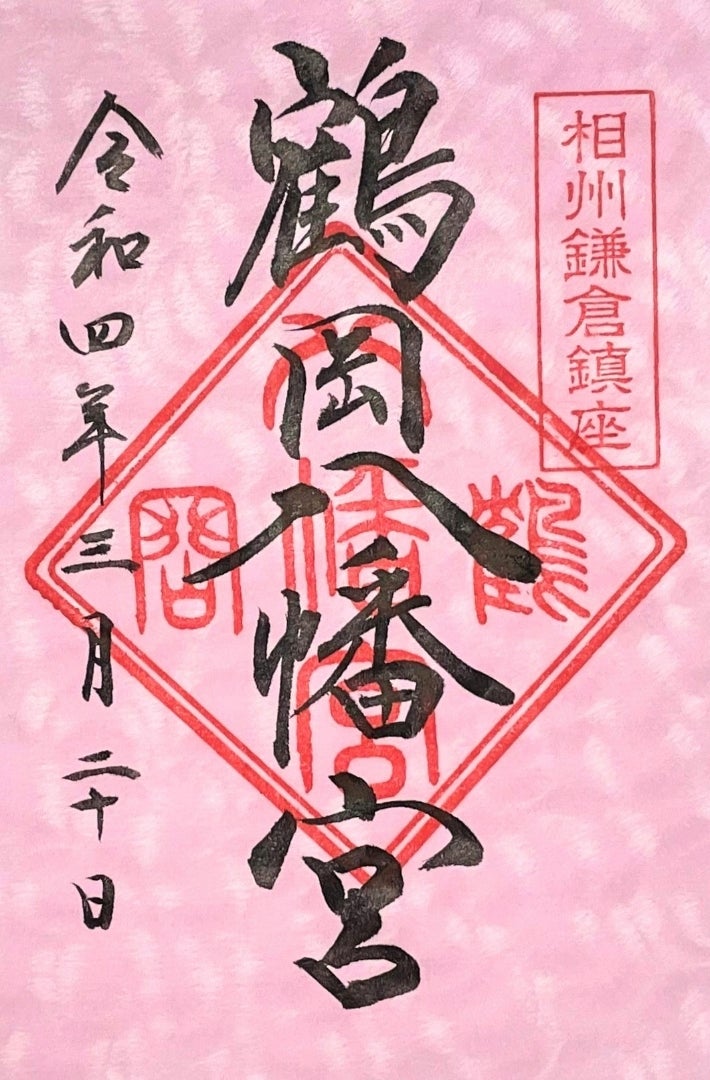 相州鎌倉鎮座
鶴岡八幡宮
鶴岡八幡宮
令和四年三月二十日